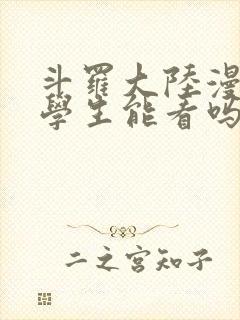 斗羅大陸漫
學生能看嗎
二之宮知子